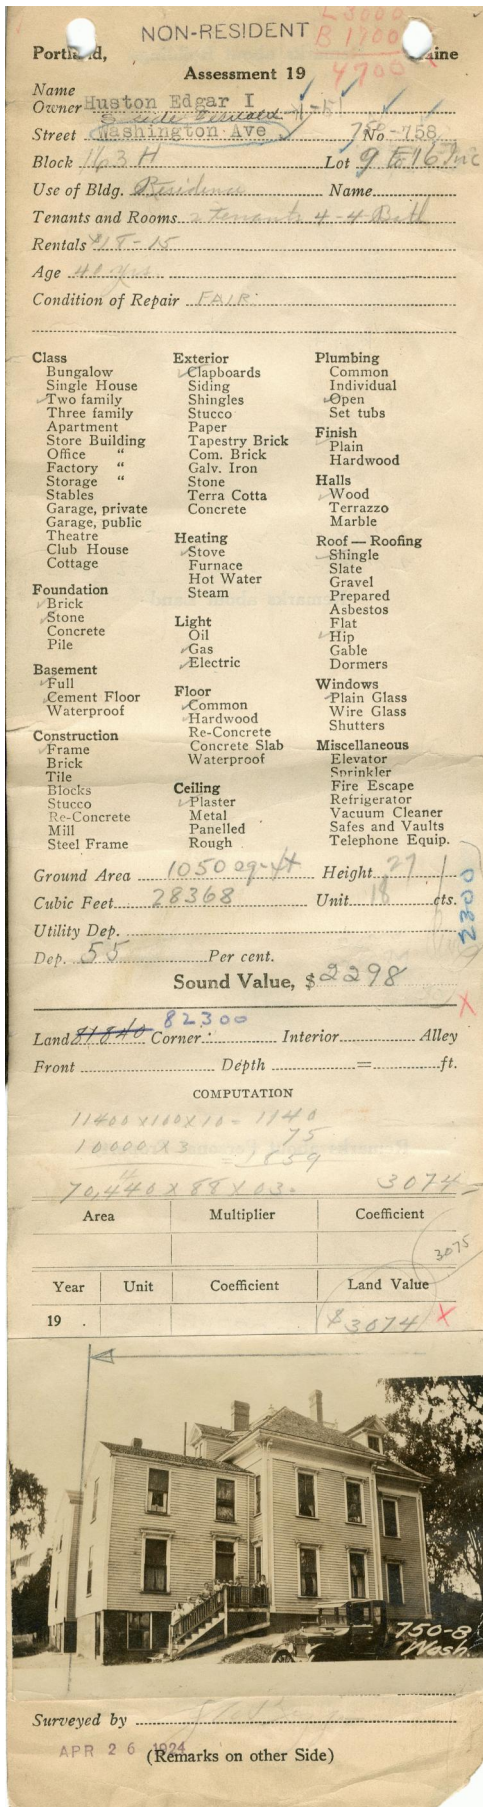 L 3000
NON-RESIDENT
B 1700
4700
Portland, Maine
Assessment 19
Name
Owner Huston Edgar I
Street Washington Ave No 758
Block 163 H Lot 9 to 16 Inc
Use of Bldg. Residence Name
Tenants and Rooms 2 tenants 4-4 Bath
Rentals $18-15
Age 40 yrs.
Condition of Repair FAIR.
Class
Bungalow
Single House
Two family
Three family
Apartment
Store Building
Office "
Factory "
Storage "
Stables
Garage, private
Garage, public
Theatre
Club House
Cottage
Foundation
Brick
Stone
Concrete
Pile
Basement
Full
Cement Floor
Waterproof
Construction
Frame
Brick
Tile
Blocks
Stucco
Re-Concrete
Mill
Steel Frame
Exterior
Clapboards
Siding
Shingles
Stucco
Paper
Tapestry Brick
Com. Brick
Galv. Iron
Stone
Terra Cotta
Concrete
Heating
Stove
Furnace
Hot Water
Steam
Light
Oil
Gas
Electric
Floor
Common
Hardwood
Re-Concrete
Concrete Slab
Waterproof
Ceiling
Plaster
Metal
Panelled
Rough
Plumbing
Common
Individual
Open
Set tubs
Finish
Plain
Hardwood
Halls
Wood
Terrazzo
Marble
Roof — Roofing
Shingle
Slate
Gravel
Prepared
Asbestos
Flat
Hip
Gable
Dormers
Windows
Plain Glass
Wire Glass
Shutters
Miscellaneous
Elevator
Sprinkler
Fire Escape
Refrigerator
Vacuum Cleaner
Safes and Vaults
Telephone Equip.
Ground Area 1050 sq. ft Height 27
Cubic Feet 28368 Unit 18 cts.
2300
Utility Dep.
Dep. 55 Per cent.
Sound Value, $ 2298
82300
Land 81840 Corner Interior Alley
Front Depth = ft.
COMPUTATION
11400 x 100 x 10 - 1140
75
10000 x 3
70,440 x 88 x 03. 3074
Area Multiplier Coefficient
3075
Year Unit Coefficient Land Value
19 . $ 3074 X
750-8
Wash.
Surveyed by
APR 26 1924
(Remarks on other Side)